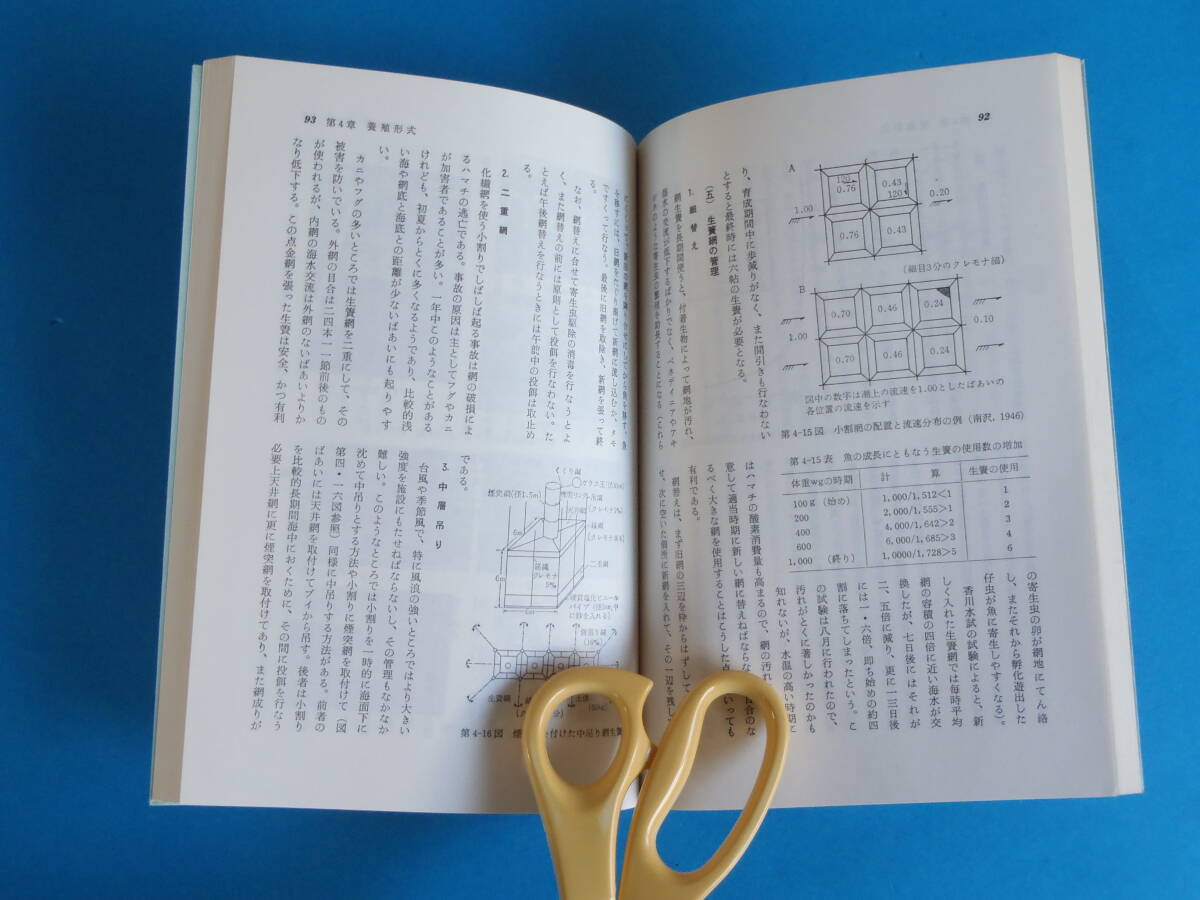 92
A
120
0.76
0.43
120
0.20
1.00
0.76
0.43
(細目3分のクレモナ網)
B
0.70
0.46
0.24
0.10
1.00
0.70
0.46
0.24
図中の数字は潮上の流速を1.00としたばあいの
各位置の流速を示す
第4-15図 小割網の配置と流速分布の例(南沢, 1946)
第4-15表 魚の成長にともなう生簀の使用数の増加
体重wgの時期 計算 生簀の使用
100g(始め) 1,000/1,512<1 1
200 2,000/1,555>1 2
400 4,000/1,642>2 3
600 6,000/1,685>3 4
1,000(終り) 1,0000/1,728>5 6
り、育成期間中に歩減りがなく、また間引きも行なわない
とすると最終時には六帖の生簀が必要となる。
(五) 生簀網の管理
1. 網替え
網生簀を長期間使うと、付着生物によって網地が汚れ、
海水の交流が低下するばかりでなく、ベネデイニアやアキ
の寄生虫の卵が網地にてん絡
し、またそれから孵化遊出した
仔虫が魚に寄生しやすくなる)。
香川水試の試験によると、新
しく入れた生簀網では毎時平均
網の容積の四倍に近い海水が交
換したが、七日後にはそれが
二、五倍に減り、更に一三日後
には一・六倍、即ち始めの約四
割に落ちてしまったという。こ
の試験は八月に行われたので、
汚れがとくに著しかったのかも
知れないが、水温の高い時期に
はハマチの酸素消費量も高まるので、網の汚れ
意して適当時期に新しい網に替えねばならな
るべく大きな網を使用することはこうした点
いっても
有利である。
網替えは、まず旧網の三辺を枠からはずして
せ、次に空いた個所に新網を入れて、その一辺を残し
93 第4章 養殖形式
ですくって行なう。最後に旧網を取除き、新網を張って終
る。
なお、網替えに合せて寄生虫駆除の消毒を行なうとよ
く、また網替えの前には原則として投餌を行わない。た
とえば午後網替えを行なうときには午前中の投餌は取止め
る。
2. 二重網
化繊網を使う小割りでしばしば起る事故は網の破損によ
るハマチの逃亡である。事故の原因は主としてフグやカニ
が加害者であることが多い。一年中このようなことがある
けれども、初夏からとくに多くなるようであり、比較的浅
い海や網底と海底との距離が少ないばあいにも起りやす
い。
カニやフグの多いところでは生簀網を二重にして、その
被害を防いでいる。外網の目合は二四本一一節前後のもの
が使われるが、内網の海水交流は外網のないばあいよりか
なり低下する。この点金網を張った生簀は安全、かつ有利
である。
3. 中層吊り
台風や季節風で、特に風浪の強いところではより大きい
強度を施設にもたせねばならないし、その管理もなかなか
難しい。このようなところでは小割りを一時的に海面下に
沈めて中吊りとする方法や小割りに煙突網を取付けて(図
第四・一六図参照)同様に中吊りする方法がある。前者の
ばあいには天井網を取付けてブイから吊す。後者は小割り
を比較的長期間海中におくために、その間に投餌を行なう
必要上天井網に更に煙突網を取付けてあり、また網成りが
くくり網
煙突網(径1.5m)
6m
6m
二重網
生簀網
第4-16図 煙
を付けた中吊り網生簀